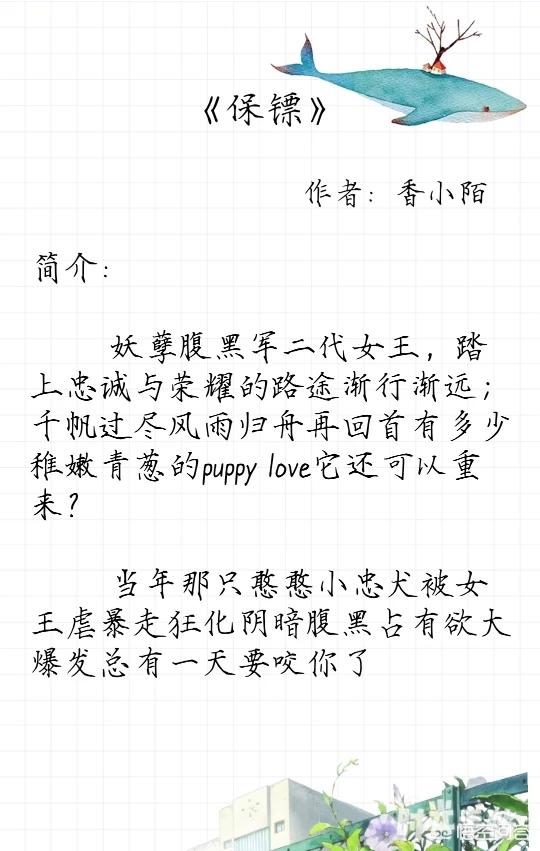 《保镖》
作者：香小陌
简介：
妖孽腹黑军二代女王，踏
上忠诚与荣耀的路途渐行渐远；
千帆过尽风雨归舟再回首有多少
稚嫩青葱的puppy love它还可以重
来？
当年那只憨憨小忠犬被女
王虐暴走狂化阴暗腹黑占有欲大
爆发总有一天要咬你了
悟空问答